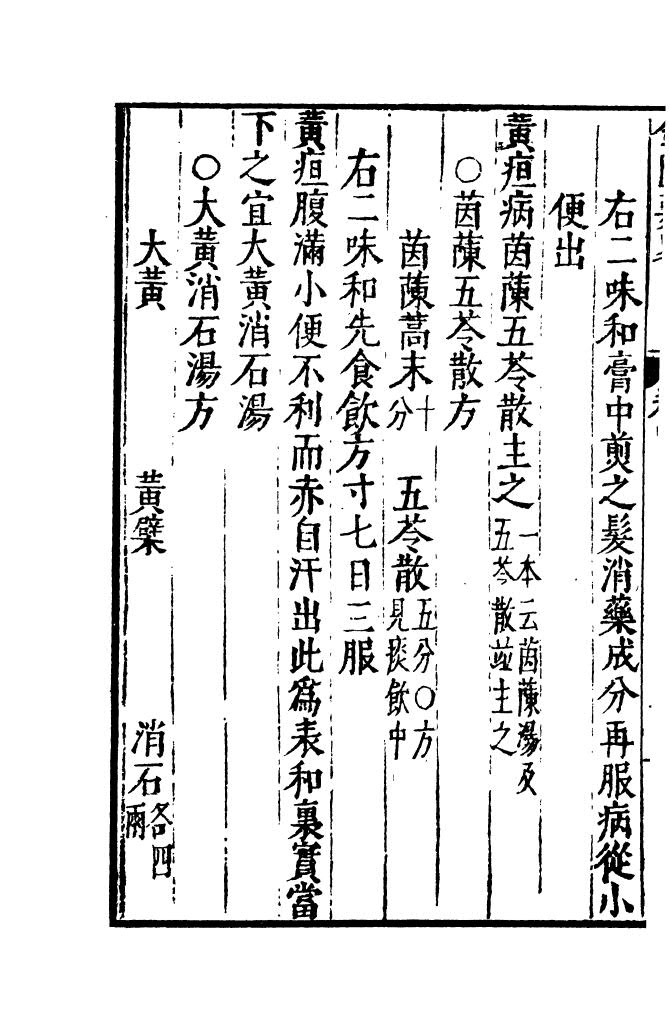 右二味和膏中煎之髮消藥成分再服病從小
便出
黃疸病茵蔯五苓散主之一本云茵蔯湯及五苓散竝主之
○茵蔯五苓散方
茵蔯蒿末十分 五苓散五分○方見痰飲中
右二味和先食飲方寸七日三服
黃疸腹滿小便不利而赤自汗出此爲表和裏實當
下之宜大黃消石湯
○大黃消石湯方
大黃 黃檗 消石各四兩